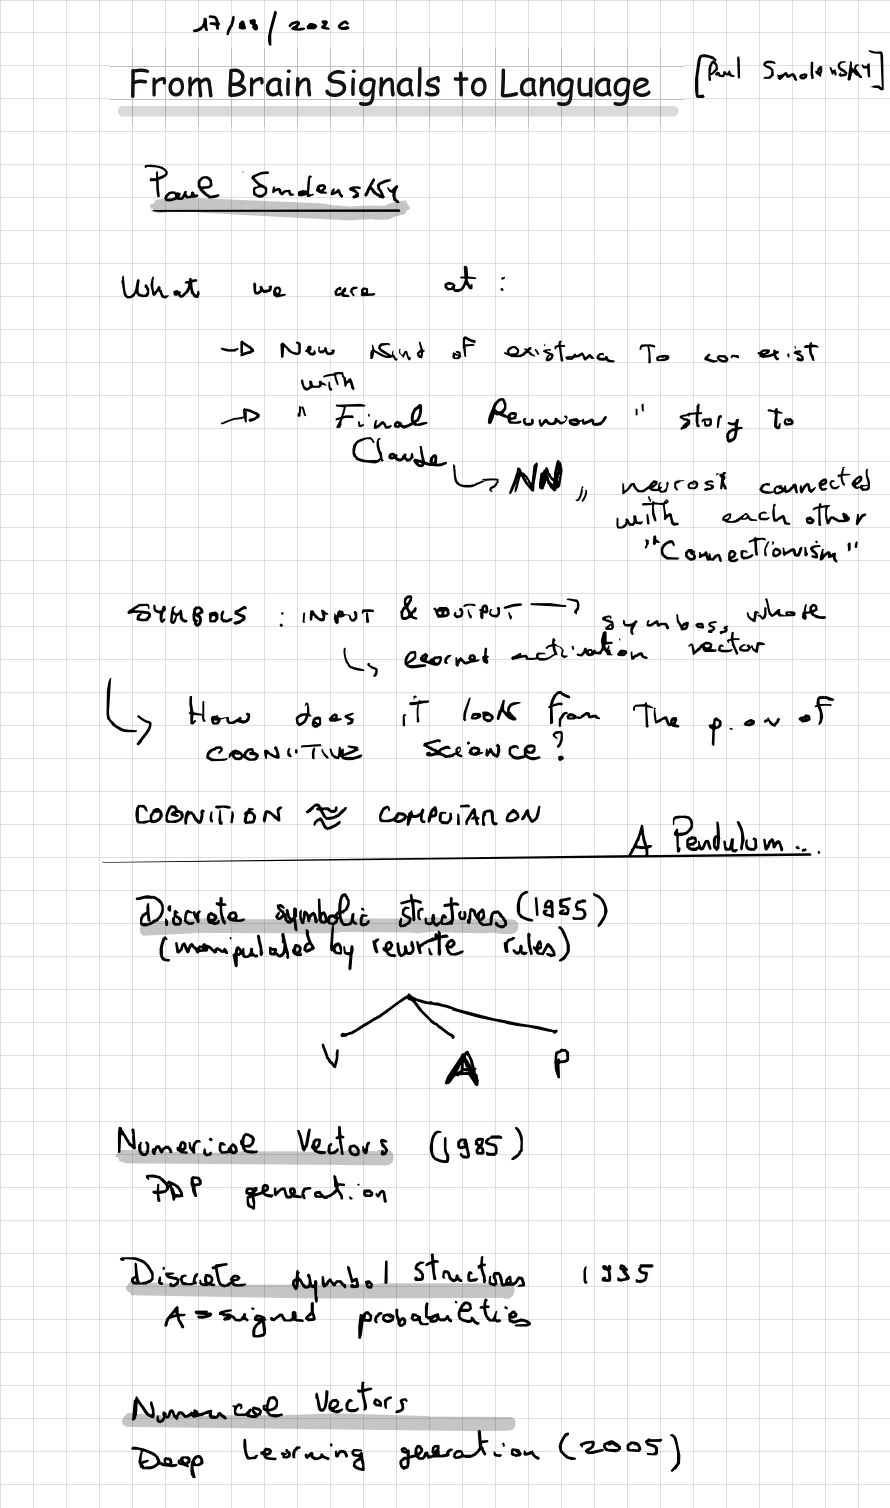 From Brain Signals to Language [Paul Smolensky]
Paul Smolensky
What we are at :
→ New kind of to co-exist
with
→ " Final Reunion " story to
Claude
↳ NN ,, connected
with each other
"Connectionism"
SYMBOLS : INPUT & OUTPUT → whose
↳ activation vector
↳ How does it look from the p. ov of
COGNITIVE science?
COGNITION ≈ COMPUTATION
A Pendulum ...
Discrete symbolic structures (1955)
(manipulated by rewrite rules)
V A P
Numerical Vectors (1985)
PDP generation
Discrete symbol structures 1995
Assigned probabilities
Numerical Vectors
Deep Learning generation (2005)